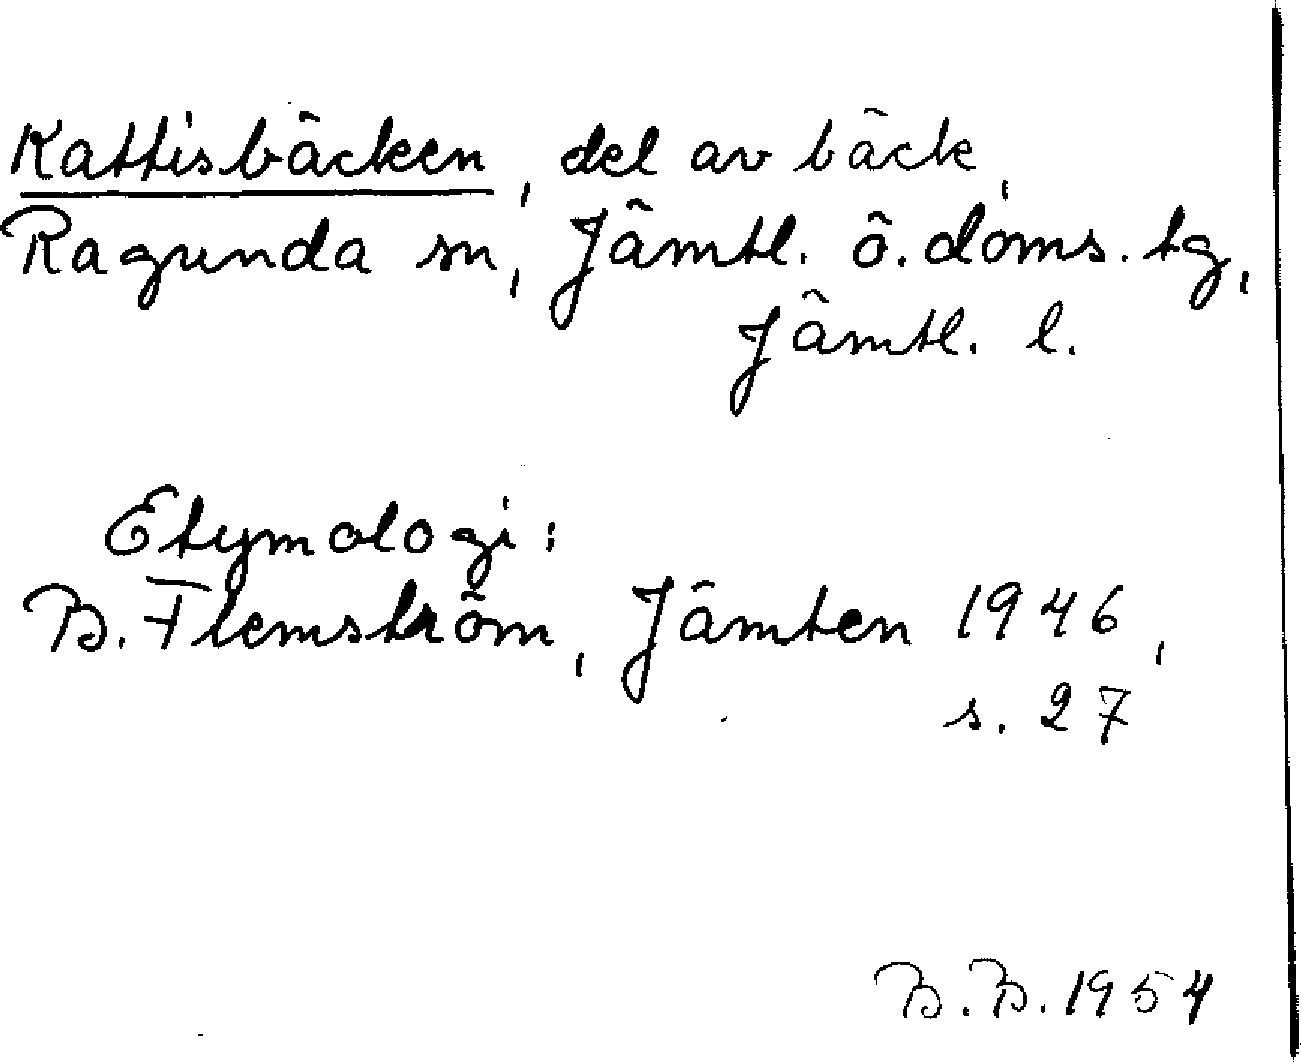 Kattisbäcken, del av bäck,
Ragunda sn, Jämtl. ö. doms. tg,
Jämtl. l.
Etymologi:
B. Flemström, Jämten 1946,
s. 27
B. B. 1954